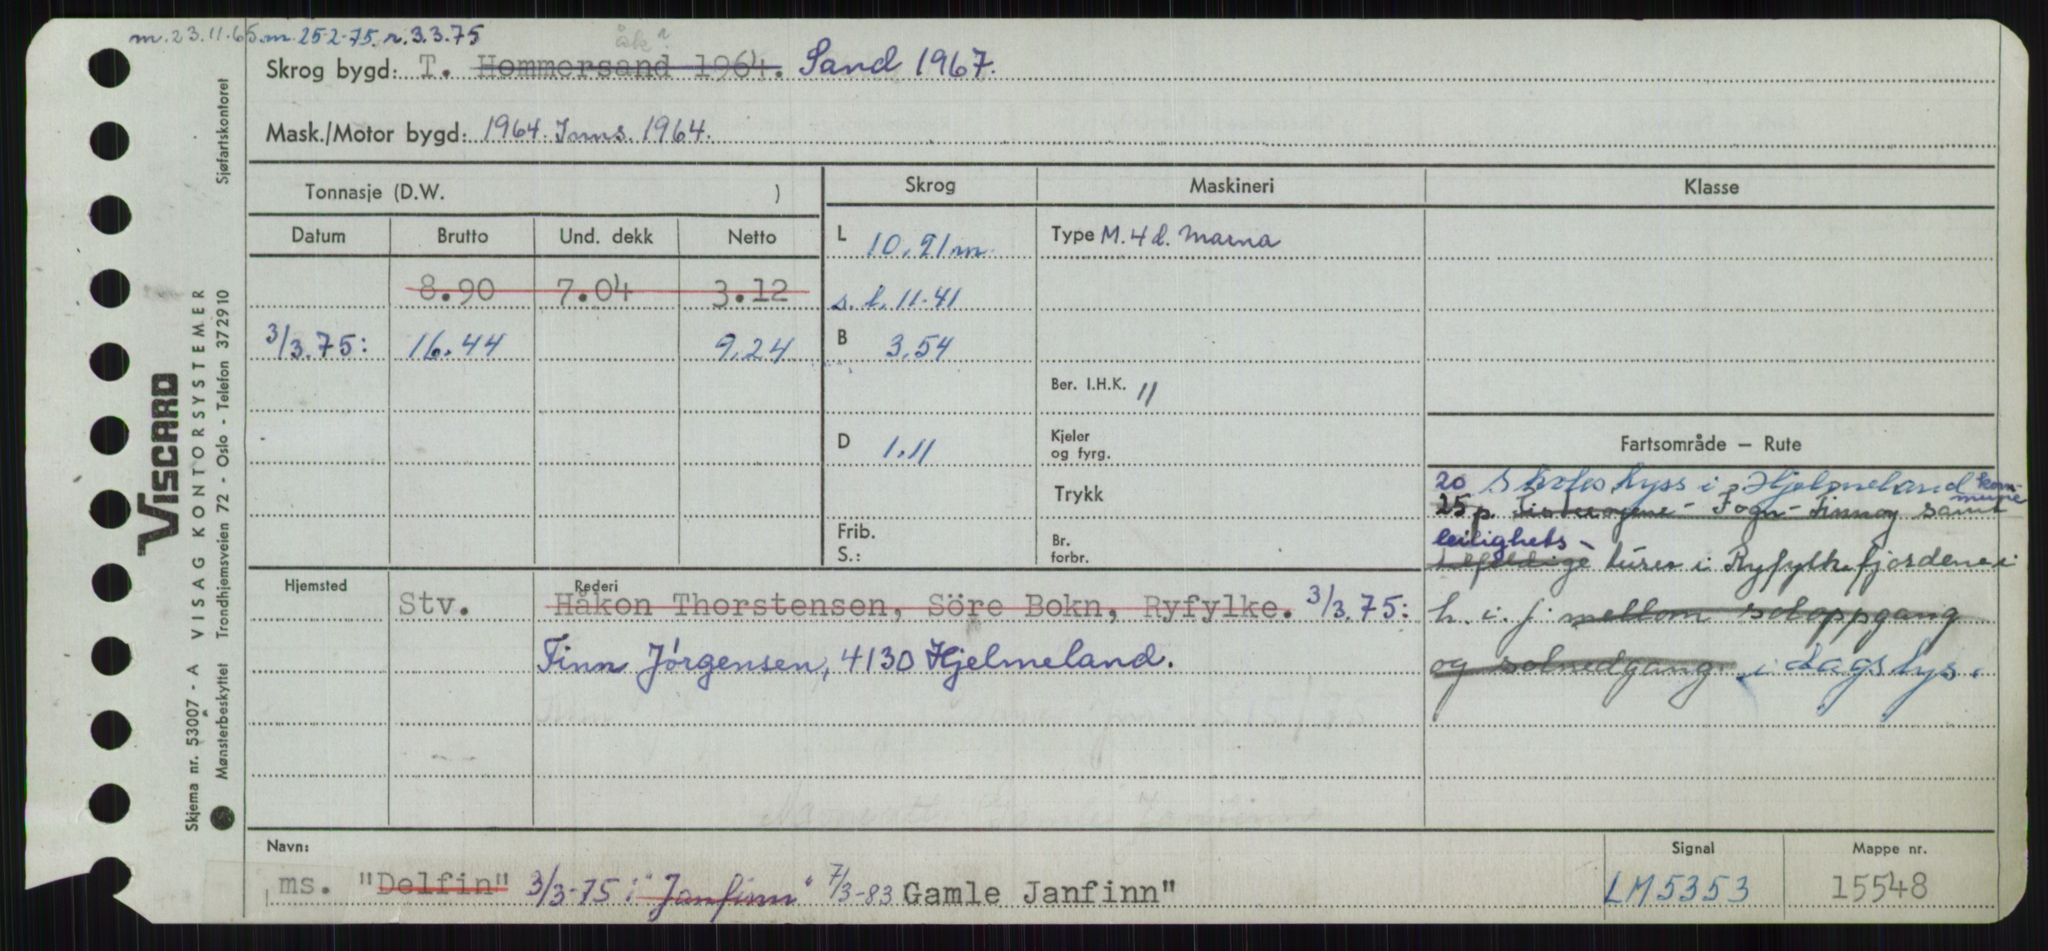 m. 23.11.65. m. 25-2-75. r. 3.3.75
åk?
Skrog bygd: T. Hommersand 1964. Sand 1967.
Mask./Motor bygd: 1964. 1964.
Tonnasje (D.W. )
Skrog
Maskineri
Klasse
Datum
Brutto
Und. dekk
Netto
L 10.91 m.
Type M. 4 d. Marna
8.90 7.04 3.12
s. l. 11.41
3/3.75: 16.44 9.24
B 3.54
Ber. I.H.K. 11
D 1.11
Kjeler
og fyrg.
Trykk
Frib.
S.:
Br.
forbr.
Fartsområde — Rute
20 skoleskyss i Hjelmeland kom-
mune
25 p. - Fogn - Finnøy samt
leilighets-
tilfeldige turer i Ryfylkefjordene i
h. i. j mellom soloppgang
og solnedgang. i dagslys.
Hjemsted
Rederi
Stv. Håkon Thorstensen, Söre Bokn, Ryfylke. 3/3.75:
Finn Jörgensen, 4130 Hjelmeland.
Navn:
ms. "Delfin" 3/3-75 i "Janfinn" 7/3-83 Gamle Janfinn"
Signal
LM5353
Mappe nr.
15548
VISCARD
Skjema nr. 53007 - A VISAG KONTORSYSTEMER
Mønsterbeskyttet Trondhjemsveien 72 - Oslo - Telefon 372910
Sjøfartskontoret